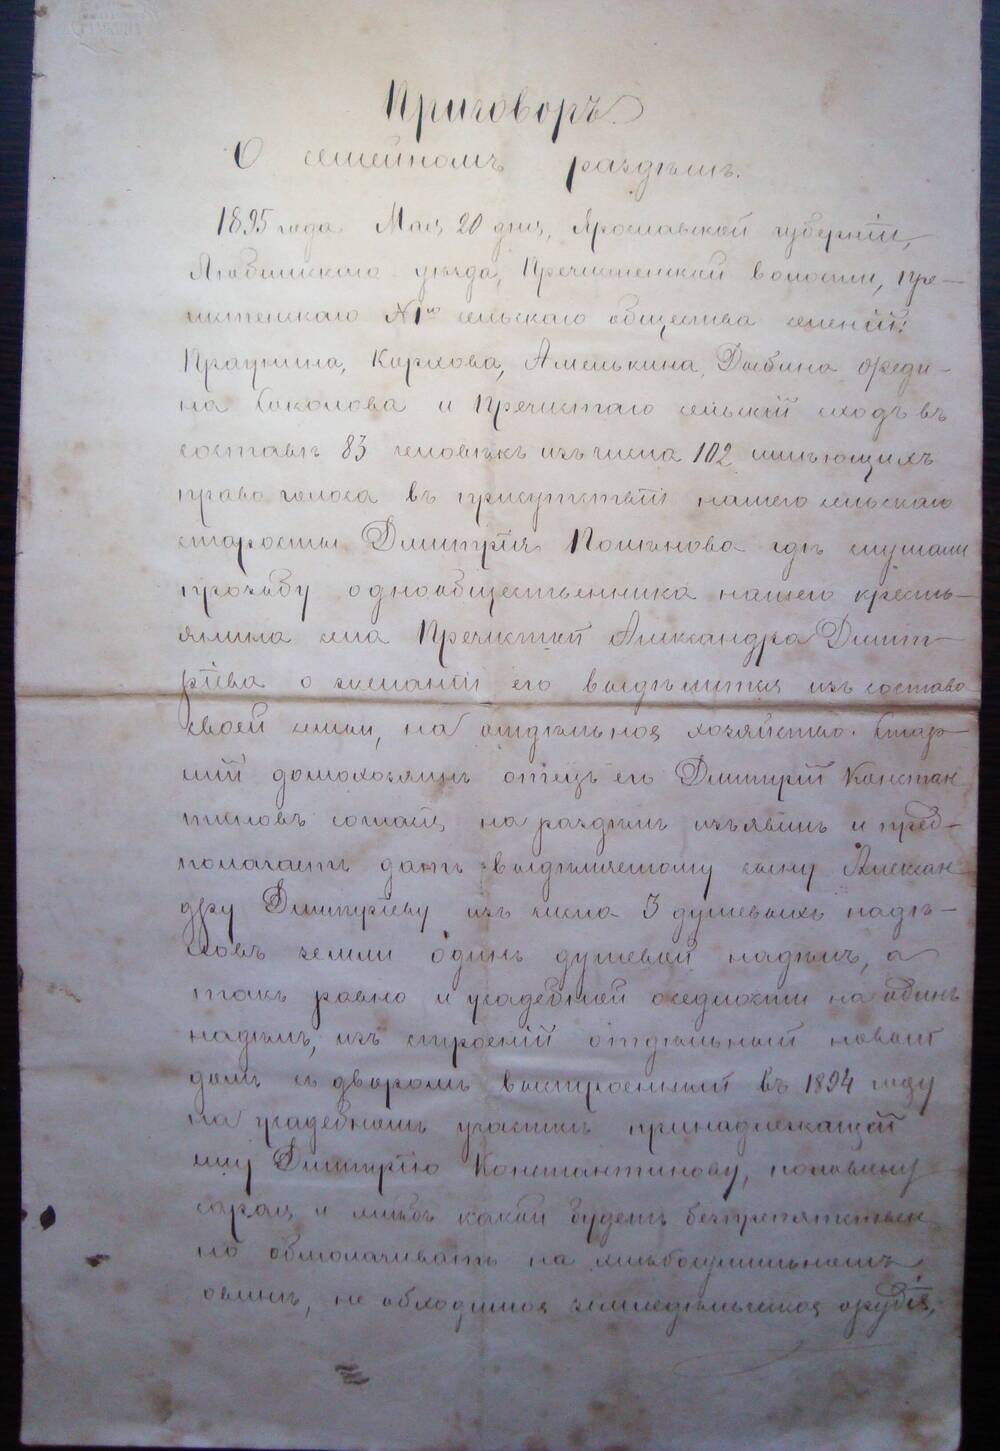 Приговоръ.
О семейномъ раздѣлѣ.
1895 года Мая 20 дня, Ярославской губерніи,
Любимскаго уѣзда, Пречистенской волости, Пре-
чистенскаго №1го сельскаго общества селеній:
Карпова, Амелькина, Дыбина
Соколова и Пречистаго сельскій сходъ въ
составѣ 83 человѣкъ изъ числа 102 имѣющихъ
право голоса въ присутствіи нашего сельскаго
старосты Дмитрія гдѣ слушали
прозьбу однообщественника нашего кресть-
янина села Пречистой Александра Дмит-
ріева о желаніи его выдѣлится изъ состава
своей семьи, на отдѣльное хозяйство. Стар-
шій домохозяинъ отецъ его Дмитрій Констан
тиновъ согласіе на раздѣлъ изъявилъ и пред-
полагаетъ дать выдѣляемому сыну Алексан
дру Дмитріеву изъ числа 3 душевыхъ надѣ-
ловъ земли одинъ душевой надѣлъ, а
такъ равно и усадебной оседлости на одинъ
надѣлъ, изъ строеній отдѣльный новый
домъ съ дворомъ выстроенный въ 1894 году
на усадебномъ участкѣ принадлежащей
ему Дмитрію Константинову, половину
сарая и хлѣбъ какой будетъ безпрепятствен
но обмолачивать на хлѣбосушильномъ
овинѣ, не обходимое земледѣльческое орудія,